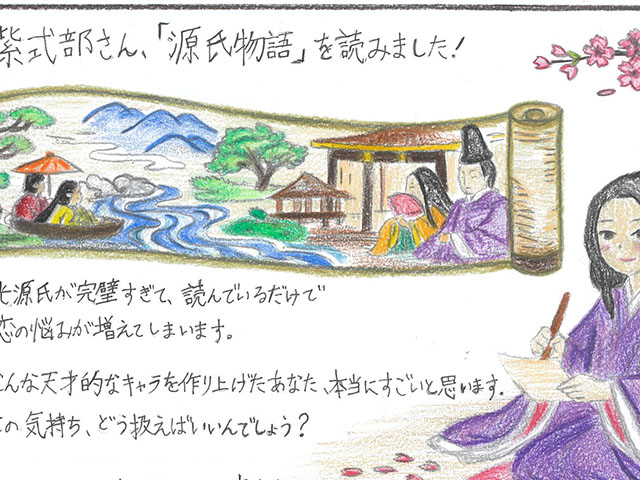 紫式部さん、「源氏物語」を読みました!
光源氏が完璧すぎて、読んでいるだけで
恋の悩みが増えてしまいます。
こんな天才的なキャラを作り上げたあなた、本当にすごいと思います。
この気持ち、どう扱えばいいんでしょう?